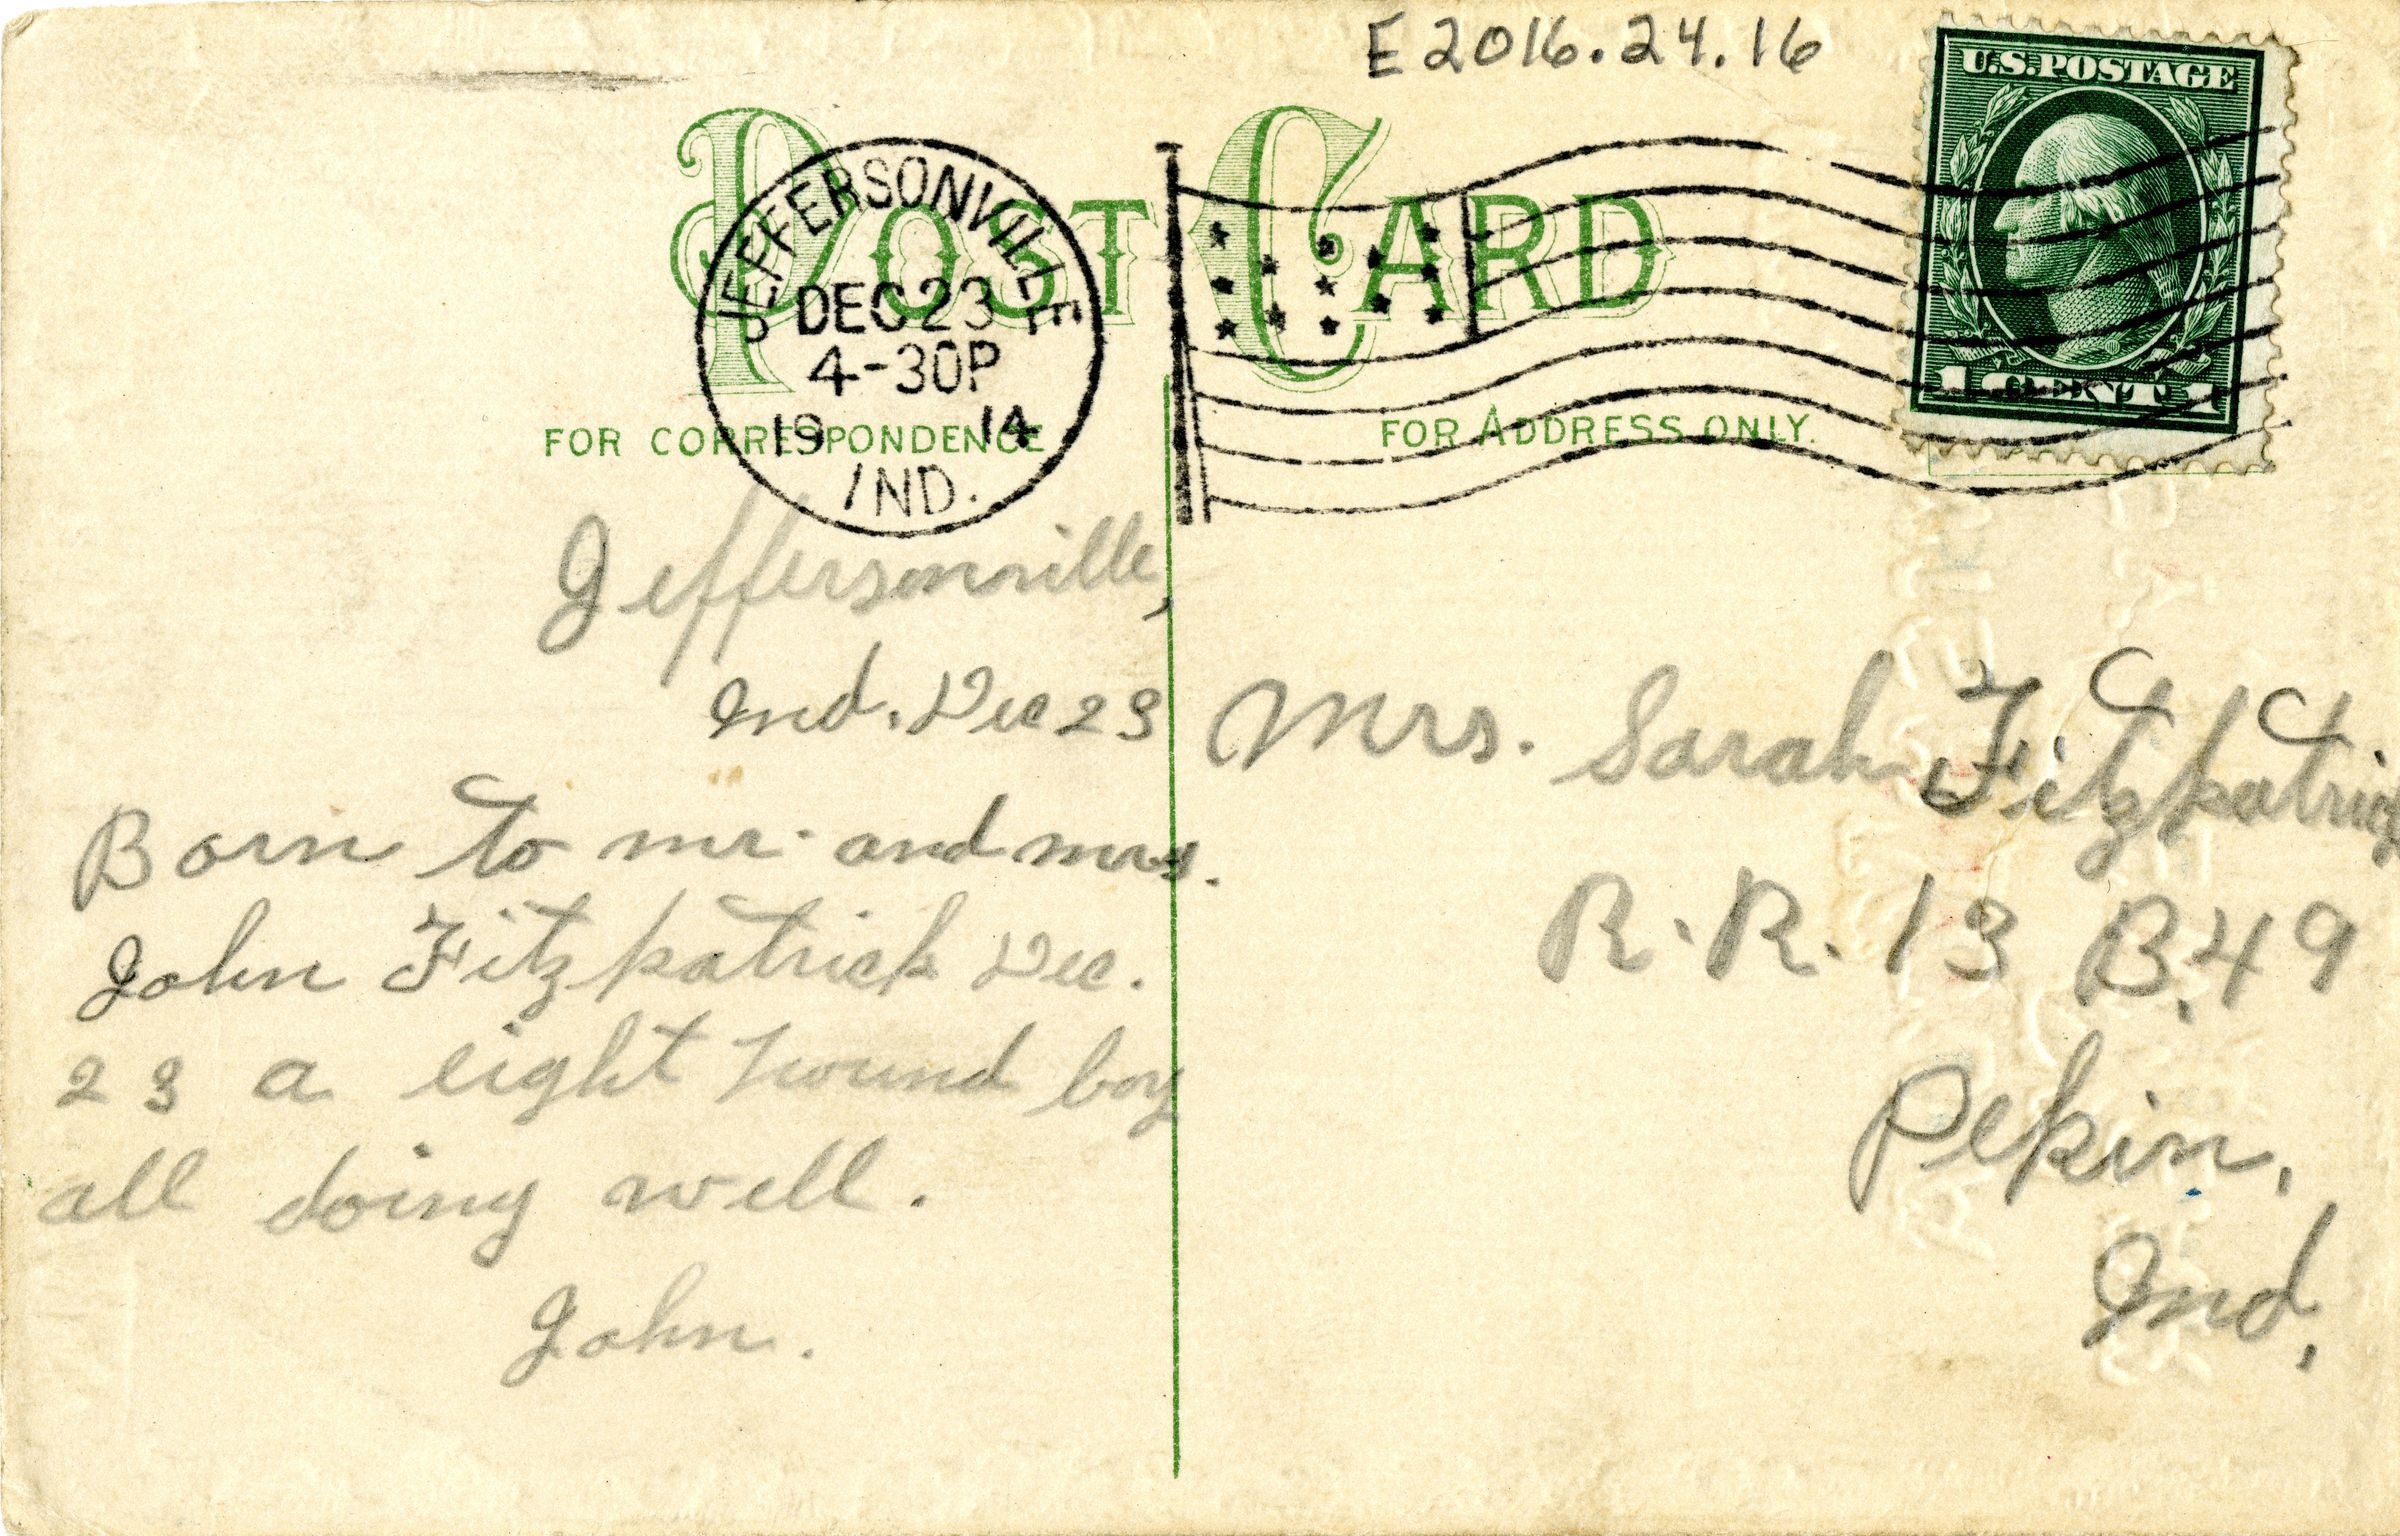 E2016.24.16
U.S. POSTAGE
1 CENT 1
POST CARD
JEFFERSONVILLE
DEC 23
4-30P
19 14
IND.
FOR CORRESPONDENCE
FOR ADDRESS ONLY.
Jeffersonville,
Ind. Dec 23
Born to mr. and mrs.
John Fitzpatrick Dec.
23 a eight pound boy
all doing well.
John.
Mrs. Sarah Fitzpatrick
R.R. 13 B.49
Pekin,
Ind,